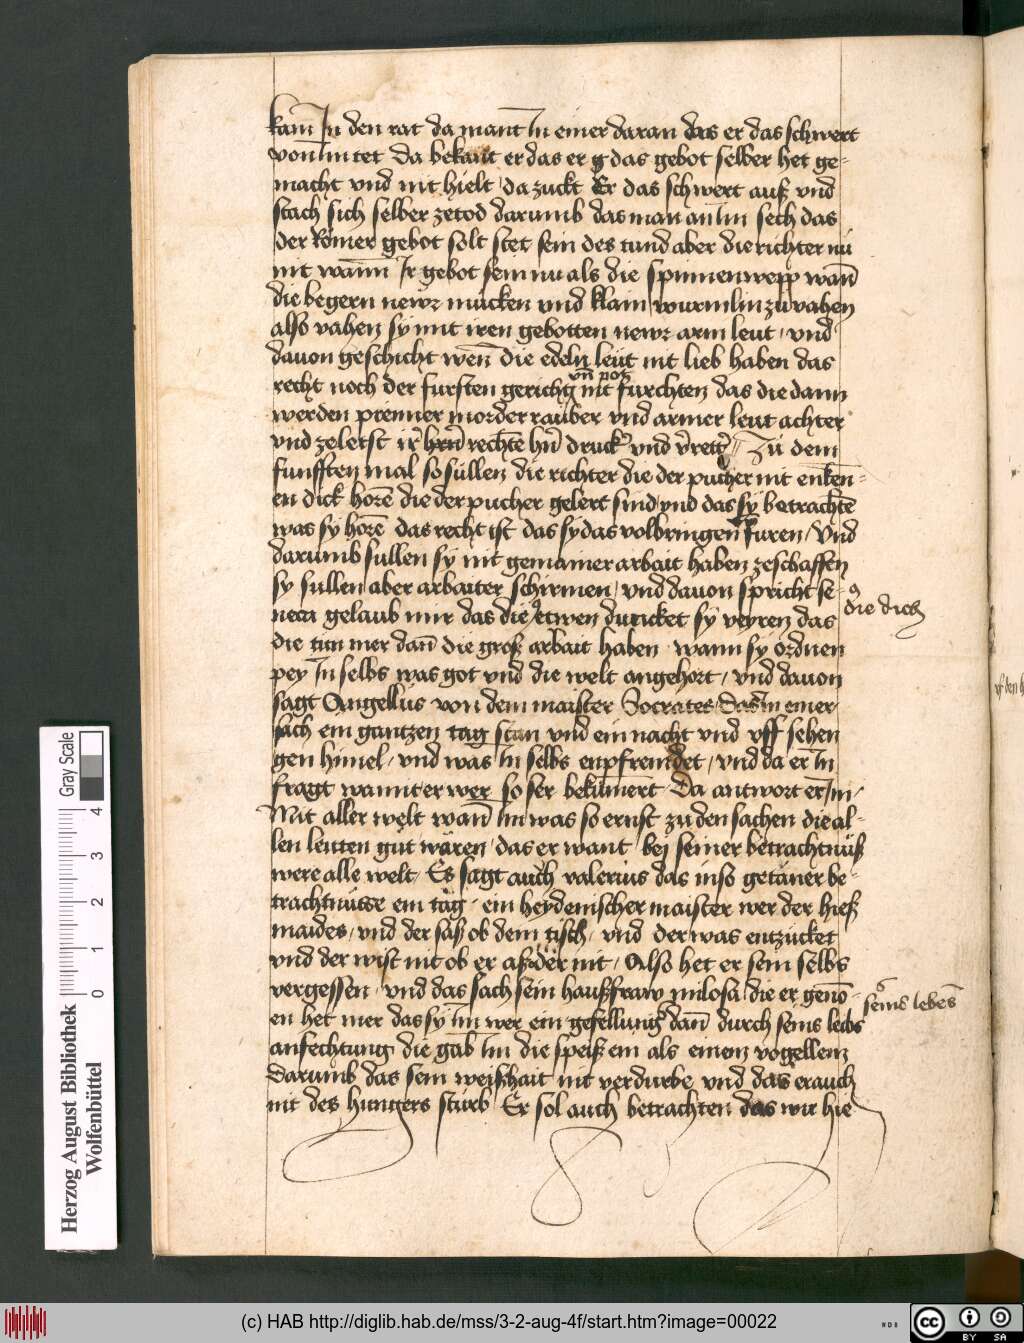 kam̄ In den rat da mant In einer daran das er das schwert
von Im tet Da bekant er das er g das gebot selber het ge-
macht vnd nit hielt / da zuckt Er das schwert auß vnd
stach sich selber zetod darumb das man an Im sech das
der Römer gebot solt stet sein des tund aber die richter nü
nit wann Ir gebot sein nu als die spinnenwepp wan̄
die begern newr mucken vnd klain würmlin zu vahen
also vahen sy mit iren gebotten newr arm leut / vnd
dauon geschicht wen̄ die edeln leüt nit lieb haben das
recht noch der fursten gericht nit furchten das die dann
werden prenner morder rauber vnd armer leut achter
vnd zeletst ir rechte vnd Zu dem
funfften mal so süllen die richter die der pucher nit enken-
en dick horē die der pucher gelert sind vnd das sy betrachtē
was sy horē das recht ist das sy das volbringen furen / Vnd
darumb sullen sy nit gemainer arbait haben zeschaffen
sy sullen aber arbaiter schirmen / vnd dauon spricht Se-
neca gelaub mir das die etwen duncket sy veyren das
die dich
die tun mer dan̄ die groß arbait haben wann sy ordnen
pey In selbs was got vnd die welt angehort / vnd dauon
sagt Angellius von dem maister Socrates Das Im einer
sach ein gantzen tag stan vnd ein nacht vnd vff sehen
gen himel / vnd was In selbs enpfremdet / vnd da er In
fragt wannit er wer so ser bekumert Da antwort er Im
Mit aller welt wan̄ Im was so ernst zu den sachen die al-
len leuten gut waren / das er want bei seiner betrachtnüß
were alle welt / Es sagt auch valerius das in so getaner be-
trachtnüsse ein tag / ein heydenischer maister wer der hieß
maides / vnd der saß ob dem tisch / vnd der was entzücket
vnd der wist nit ob er aß oder nit / Also het er sein selbs
vergessen / vnd das sach sein haußfraw milosa die er genō-
seins lebēs
en het mer das sy Im wer ein gesellung dan̄ durch seins leibs
anfechtung die gab Im die speiß ein als einem vögellein
Darumb das sein weißhait nit verdurbe vnd das er auch
nit des hungers stürb Er sol auch betrachten das wir hie
Herzog August Bibliothek
Wolfenbüttel
0 1 2 3 4
Gray Scale
(c) HAB http://diglib.hab.de/mss/3-2-aug-4f/start.htm?image=00022
WDB
cc BY SA